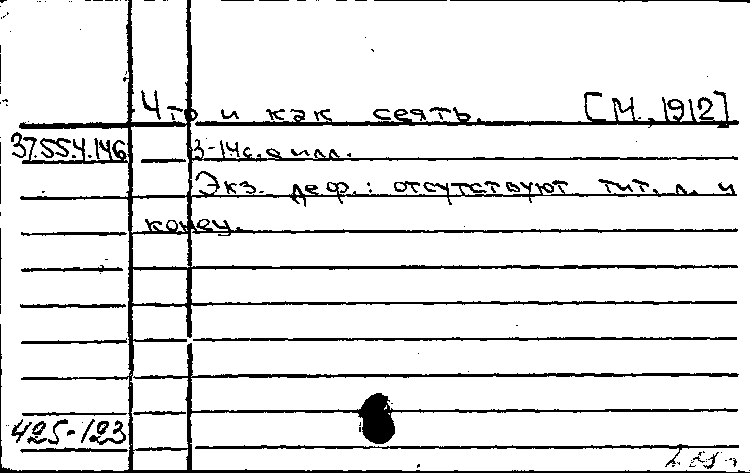 Что и как сеять. [М., 1912]
37.55.4.146 3-14с. с илл.
Экз. деф.: отсутствуют тит. л. и
конец.
425-123